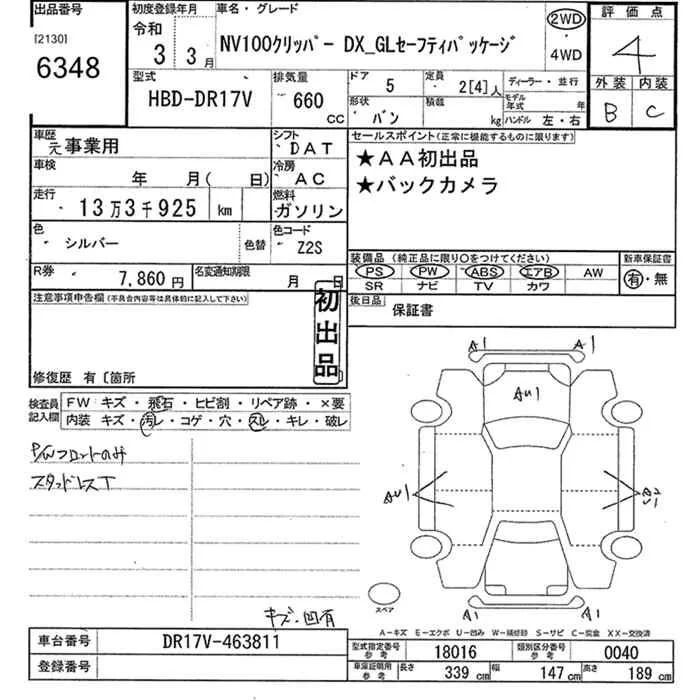 出品番号
[2130]
6348
初度登録年月
令和
3 3月
車名・グレード
NV100クリッパー DX_GLセーフティパッケージ
2WD
・
4WD
評価点
4
外装 内装
B C
型式
HBD-DR17V
排気量
660
CC
ドア 5
定員 2[4]人
ディーラー・並行
形状 バン
積載 kg
モデル年式 年
ハンドル 左・右
車歴
元事業用
シフト
DAT
車検
年 月( 日)
冷房
AC
走行
13万3千925 km
燃料
ガソリン
色
シルバー
色替
色コード
Z2S
R券
7,860円
名変通知期限
月 日
セールスポイント(正常に機能するものに限ります)
★AA初出品
★バックカメラ
装備品(純正品に限り○をつけてください)
PS PW ABS エアB AW
SR ナビ TV カワ
新車保証書
有・無
後日品
保証書
注意事項申告欄(不具合内容等は具体的に記入して下さい)
初出品
修復歴 有〔箇所
検査員記入欄
FW キズ・飛石・ヒビ割・リペア跡・×要
内装 キズ・汚レ・コゲ・穴・スレ・キレ・破レ
P/Wフロントのみ
スタッドレスT
キズ・凹有
A1 A1
AU1
AU1
A1 A1
スペア
A-キズ E-エクボ U-凹み W-補修跡 S-サビ C-腐食 XX-交換済
車台番号
DR17V-463811
登録番号
型式指定番号 参考
18016
類別区分番号 参考
0040
車庫証明用 参考
長さ 339 cm
幅 147 cm
高さ 189 cm